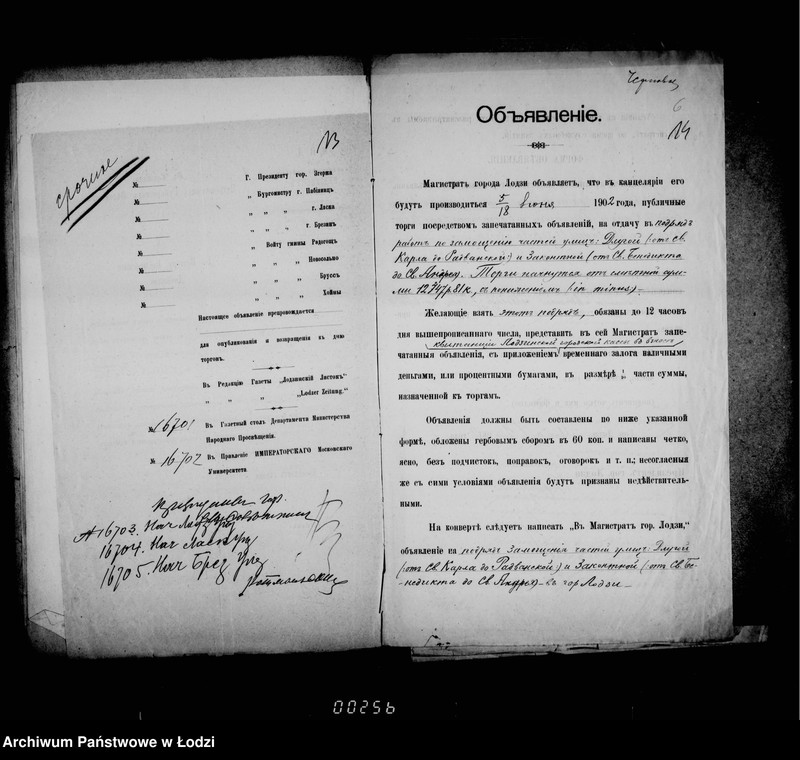 срочное
13
№
№
№
№
№
№
№
№
Г. Президенту гор. Згержа
„ Бургомистру г. Пабіяницъ
„ „ „ г. Ласка
„ „ „ г. Брезинъ
„ Войту гмины Радогощъ
„ „ „ Новосольно
„ „ „ Брусъ
„ „ „ Хойны
Настоящее объявленіе препровождается
для опубликованія и возвращенія къ дню
торговъ.
Въ Редакцію Газеты „Лодзинскій Листокъ“
„ „ „ „Lodzer Zeitung.“
№ 16701 Въ Газетный столъ Департамента Министерства
Народнаго Просвѣщенія.
№ 16702 Въ Правленіе ИМПЕРАТОРСКАГО Московскаго
Университета
16703. Нач
16704. Нач Ласк
16705. Нач Брез
6
14
Объявленіе.
Магистратъ города Лодзи объявляетъ, что въ канцеляріи его
будутъ производиться 5/18 Іюня 1902 года, публичные
торги посредствомъ запечатанныхъ объявленій, на отдачу въ подрядъ
работъ по замощенію частей улицъ: Длугой (отъ Св.
Карла до Радванской) и Законтной (отъ Св. Бенедикта
до Св. Андрея). Торги начнутся отъ смѣтной сум-
мы 12747 р. 81 к., съ пониженіемъ (in minus).
Желающіе взять этотъ подрядъ, обязаны до 12 часовъ
дня вышепрописаннаго числа, представить въ сей Магистратъ запе-
квитанціи Лодзинской городской кассы
чатанныя объявленія, съ приложеніемъ временнаго залога наличными
деньгами, или процентными бумагами, въ размѣрѣ части суммы,
назначенной къ торгамъ.
Объявленія должны быть составлены по ниже указанной
формѣ, обложены гербовымъ сборомъ въ 60 коп. и написаны четко,
ясно, безъ подчистокъ, поправокъ, оговорокъ и т. п.; несогласныя
же съ сими условіями объявленія будутъ признаны недѣйствитель-
ными.
На конвертѣ слѣдуетъ написать „Въ Магистратъ гор. Лодзи,“
объявленіе на подрядъ замощенія частей улицъ: Длугой
(отъ Св. Карла до Радванской) и Законтной (отъ Св. Бе-
недикта до Св. Андрея) въ гор Лодзи
00256
Archiwum Państwowe w Łodzi